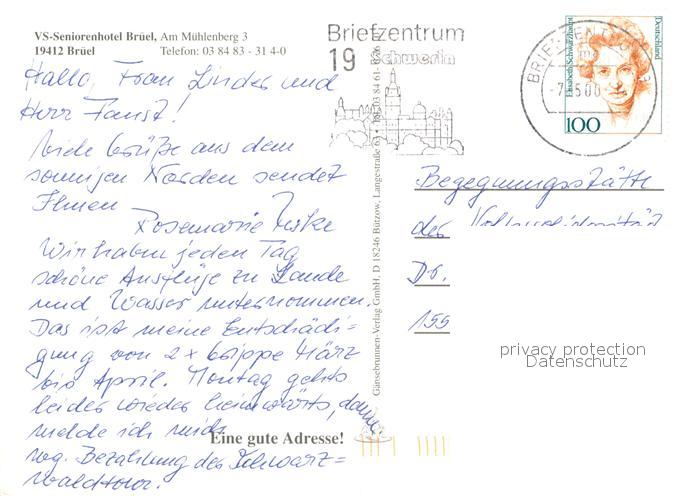 VS-Seniorenhotel Brüel, Am Mühlenberg 3
19412 Brüel Telefon: 03 84 83 - 31 4-0
Hallo, Frau Lindes und
Herr Faust!
Viele Grüße aus dem
sonnigen Norden sendet
Ihnen
Rosemarie
Wir haben jeden Tag
schöne Ausflüge zu Lande
und Wasser unternommen.
Das ist meine Entschädi=
gung von 2x Grippe März
bis April. Montag gehts
leider wieder heimwärts, dann
melde ich mich
wg. Bezahlung der Schwarz=
waldtour.
Eine gute Adresse!
Gänsebrunnen-Verlag GmbH, D 18246 Bützow, Langestraße 63 • Tel. 03 84 61-
Briefzentrum
19 Schwerin
BRIEFZENTRUM
-7.-5.00
Elisabeth Schwarzhaupt
Deutschland
100
Begegnungsstätte
der
Dr.
155
privacy protection
Datenschutz